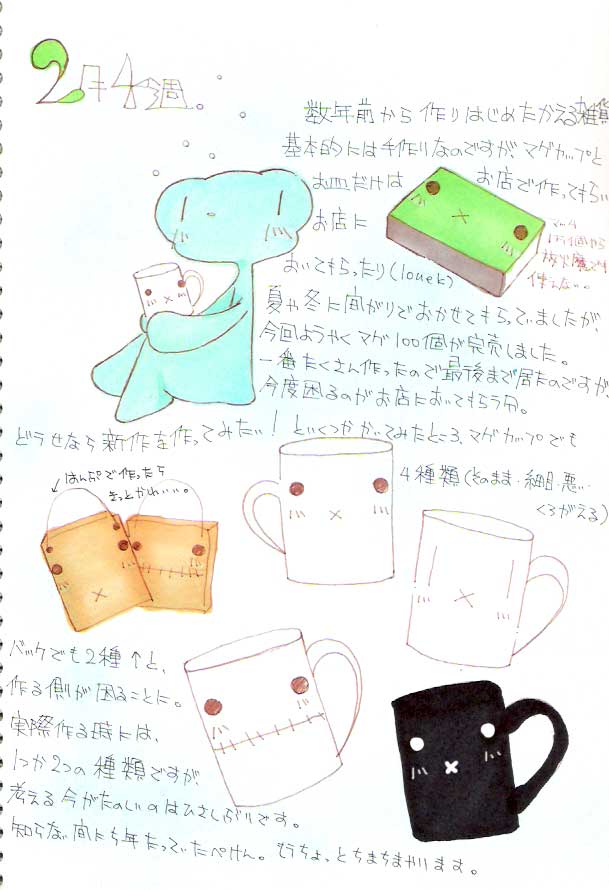 2月4週。
数年前から作りはじめたかえる雑貨
基本的には手作りなのですが、マグカップと
お皿だけは お店で作ってもらい
お店に
おいてもらったり(louek)
夏や冬に間がりでおかせてもらっていましたが、
今回ようやくマグ100個が完売しました。
一番たくさん作ったので最後まで居たのですが
今度困るのがお店においてもらう分。
どうせなら新作を作ってみたい! といくつかかいてみたところ、マグカップでも
4種類(そのまま・細目・悪い・
くろがえる)
←はんぷで作ったら
きっとかわいい。
バックでも2種↑と、
作る側が困ることに。
実際作る時には、
1つか2つの種類ですが、
考える今がたのしいのはひさしぶりです。
知らない間に5年たっていたぺけん。もうちょっとちまちまやります。